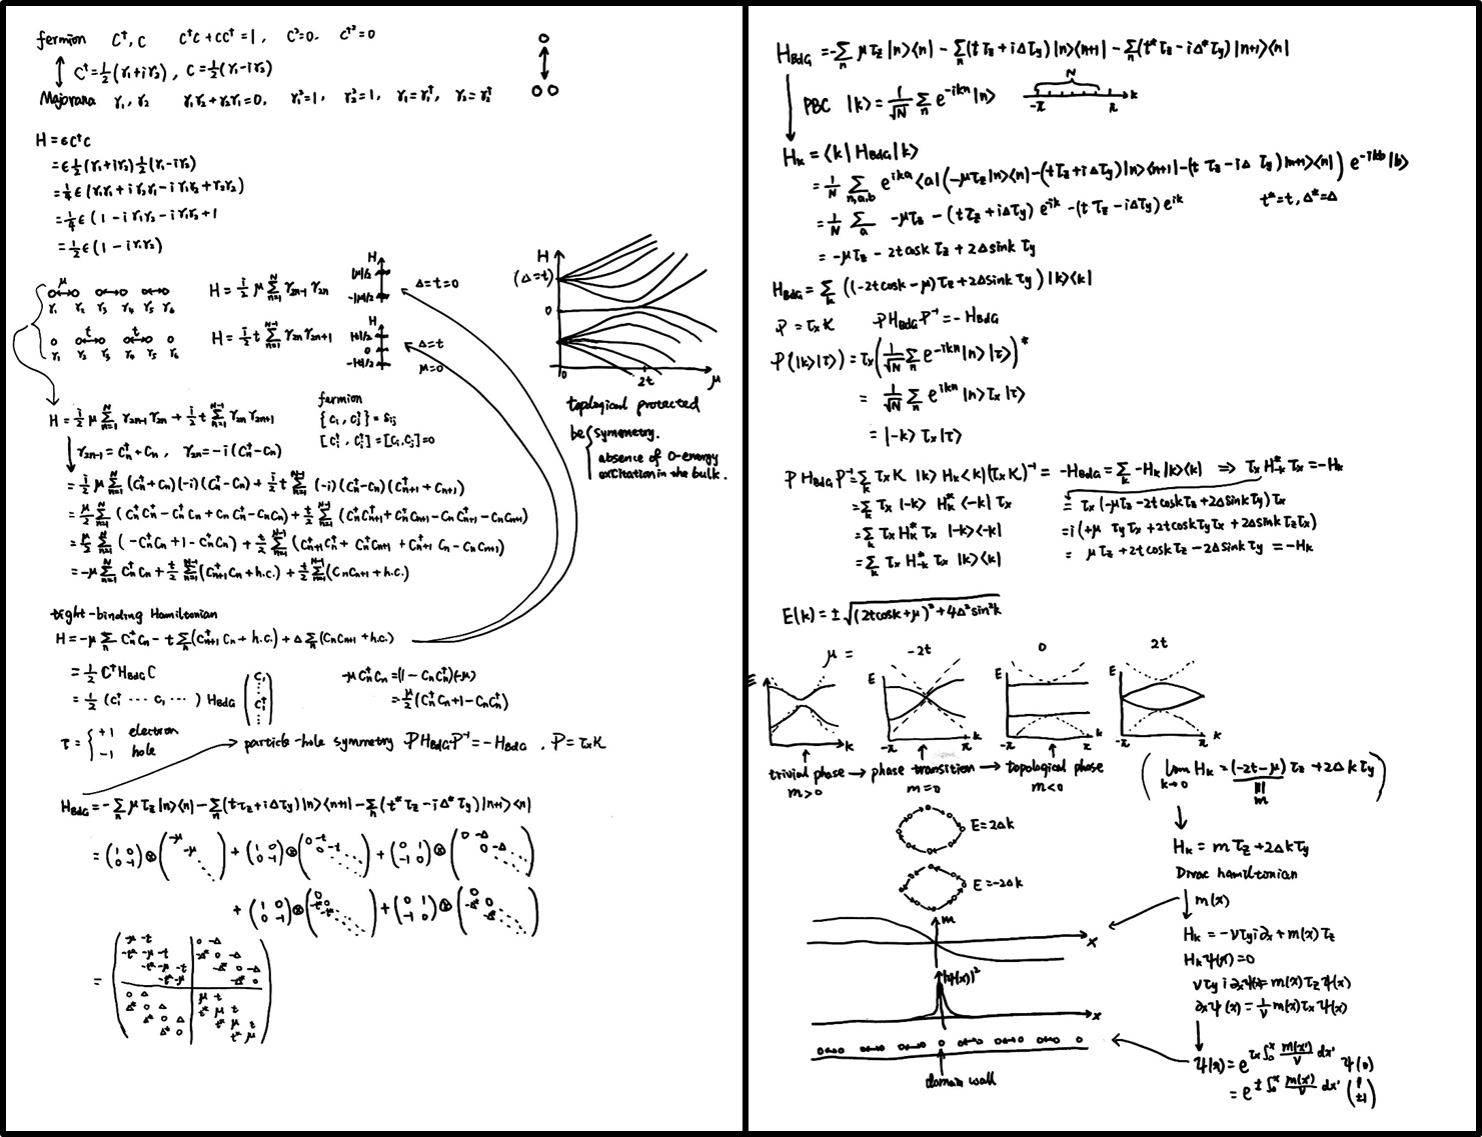 fermion C†, C C†C + CC† = 1, C²=0, C†²=0
↕ C†=½(γ₁+iγ₂), C=½(γ₁-iγ₂)
Majorana γ₁, γ₂ γ₁γ₂+γ₂γ₁=0, γ₁²=1, γ₂²=1, γ₁=γ₁†, γ₂=γ₂†
H = εC†C
= ε½(γ₁+iγ₂)½(γ₁-iγ₂)
= ¼ε(γ₁γ₁+iγ₂γ₁-iγ₁γ₂+γ₂γ₂)
= ¼ε(1-iγ₁γ₂-iγ₁γ₂+1
= ½ε(1-iγ₁γ₂)
μ
γ₁ γ₂ γ₃ γ₄ γ₅ γ₆
H = i/2 μ Σₙ₌₁ᴺ γ₂ₙ₋₁γ₂ₙ
H |μ|/2 -|μ|/2 Δ=t=0
t t
γ₁ γ₂ γ₃ γ₄ γ₅ γ₆
H = i/2 t Σₙ₌₁ᴺ⁻¹ γ₂ₙγ₂ₙ₊₁
H |t|/2 0 -|t|/2 Δ=t μ=0
H (Δ=t) 0 0 2t μ
topological protected
be { symmetry.
absence of 0-energy
excitation in the bulk.
H = i/2 μ Σₙ₌₁ᴺ γ₂ₙ₋₁γ₂ₙ + i/2 t Σₙ₌₁ᴺ⁻¹ γ₂ₙγ₂ₙ₊₁
fermion
{Cᵢ, Cⱼ†}=δᵢⱼ
[Cᵢ†, Cⱼ†]=[Cᵢ,Cⱼ]=0
↓ γ₂ₙ₋₁=Cₙ†+Cₙ, γ₂ₙ=-i(Cₙ†-Cₙ)
= i/2 μ Σₙ₌₁ᴺ (Cₙ†+Cₙ)(-i)(Cₙ†-Cₙ) + i/2 t Σₙ₌₁ᴺ⁻¹ (-i)(Cₙ†-Cₙ)(Cₙ₊₁†+Cₙ₊₁)
= μ/2 Σₙ₌₁ᴺ (Cₙ†Cₙ†-Cₙ†Cₙ+CₙCₙ†-CₙCₙ) + t/2 Σₙ₌₁ᴺ⁻¹ (Cₙ†Cₙ₊₁†+Cₙ†Cₙ₊₁-CₙCₙ₊₁†-CₙCₙ₊₁)
= μ/2 Σₙ₌₁ᴺ (-Cₙ†Cₙ+1-Cₙ†Cₙ) + t/2 Σₙ₌₁ᴺ⁻¹ (Cₙ₊₁†Cₙ†+Cₙ†Cₙ₊₁+Cₙ₊₁†Cₙ-CₙCₙ₊₁)
= -μ Σₙ₌₁ᴺ Cₙ†Cₙ + t/2 Σₙ₌₁ᴺ⁻¹ (Cₙ₊₁†Cₙ+h.c.) + t/2 Σₙ₌₁ᴺ⁻¹ (CₙCₙ₊₁+h.c.)
tight-binding Hamiltonian
H = -μ Σₙ Cₙ†Cₙ - t Σₙ (Cₙ₊₁†Cₙ+h.c.) + Δ Σₙ (CₙCₙ₊₁+h.c.)
= ½ C†H_BdG C
= ½ (C₁† ⋯ C₁ ⋯) H_BdG (C₁ ⋮ C₁† ⋮)
-μCₙ†Cₙ = (1-CₙCₙ†)(-μ)
= μ/2 (Cₙ†Cₙ+1-CₙCₙ†)
τ = { +1 electron
-1 hole
particle-hole symmetry PH_BdG P⁻¹=-H_BdG, P=τₓK
H_BdG = -Σₙ μτ_z|n⟩⟨n| - Σₙ(tτ_z+iΔτ_y)|n⟩⟨n+1| - Σₙ(t*τ_z-iΔ*τ_y)|n+1⟩⟨n|
= (1 0 / 0 -1)⊗(-μ / -μ ⋱) + (1 0 / 0 -1)⊗(0 -t ⋱) + (0 1 / -1 0)⊗(0 -Δ / 0 -Δ ⋱)
+ (1 0 / 0 -1)⊗(0 / -t* 0 / -t* ⋱) + (0 1 / -1 0)⊗(0 / -Δ* 0 / -Δ* ⋱)
= (
-μ -t 0 -Δ
-t* -μ -t -Δ* 0 -Δ
-t* -μ -t -Δ* 0 -Δ
-t* -μ -Δ* 0
0 Δ μ t
Δ* 0 Δ t* μ t
Δ* 0 Δ t* μ t
Δ* 0 t* μ
)
H_BdG = -Σₙ μτ_z|n⟩⟨n| - Σₙ(tτ_z+iΔτ_y)|n⟩⟨n+1| - Σₙ(t*τ_z-iΔ*τ_y)|n+1⟩⟨n|
PBC |k⟩ = 1/√N Σₙ e^(-ikn)|n⟩ N -π π k
Hₖ = ⟨k|H_BdG|k⟩
= 1/N Σₙ,ₐ,ᵦ e^(ika)⟨a|(-μτ_z|n⟩⟨n|-(tτ_z+iΔτ_y)|n⟩⟨n+1|-(t τ_z-iΔ τ_y)|n+1⟩⟨n|) e^(-ikb)|b⟩
= 1/N Σₐ -μτ_z - (tτ_z+iΔτ_y)e^(ik) - (tτ_z-iΔτ_y)e^(ik) t*=t, Δ*=Δ
= -μτ_z - 2tcosk τ_z + 2Δsink τ_y
H_BdG = Σₖ ((-2tcosk-μ)τ_z+2Δsink τ_y)|k⟩⟨k|
P = τₓK PH_BdG P⁻¹=-H_BdG
P(|k⟩|τ⟩) = τₓ(1/√N Σₙ e^(-ikn)|n⟩|τ⟩)*
= 1/√N Σₙ e^(ikn)|n⟩τₓ|τ⟩
= |-k⟩τₓ|τ⟩
PH_BdG P⁻¹=Σₖ τₓK |k⟩Hₖ⟨k|(τₓK)⁻¹ = -H_BdG=Σₖ -Hₖ|k⟩⟨k| ⇒ τₓH₋ₖ*τₓ=-Hₖ
=Σₖ τₓ|-k⟩Hₖ*⟨-k|τₓ
=Σₖ τₓHₖ*τₓ|-k⟩⟨-k|
=Σₖ τₓH₋ₖ*τₓ|k⟩⟨k|
= τₓ(-μτ_z-2tcoskτ_z+2Δsinkτ_y)τₓ
= i(+μ τ_yτₓ+2tcoskτ_yτₓ+2Δsinkτ_zτₓ)
= μτ_z+2tcoskτ_z-2Δsinkτ_y=-Hₖ
E(k)=±√((2tcosk+μ)²+4Δ²sin²k)
μ = -2t 0 2t
E k
E -π π k
E -π π k
E -π π k
trivial phase → phase transition → topological phase
m>0 m=0 m<0
( lim k→0 Hₖ=(-2t-μ)τ_z+2Δkτ_y )
m
E=2Δk
E=-2Δk
Hₖ = mτ_z+2Δkτ_y
Dirac hamiltonian
↓ m(x)
m x
Hₖ = -vτ_y i∂ₓ+m(x)τ_z
Hₖψ(x)=0
vτ_y i∂ₓψ=m(x)τ_zψ(x)
∂ₓψ(x)=1/v m(x)τₓψ(x)
|ψ(x)|² x
domain wall
ψ(x)=e^(τₓ∫₀ˣ m(x')/v dx') ψ(0)
=e^(±∫₀ˣ m(x')/v dx') (1 / ±1)